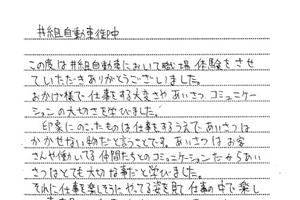 井組自動車御中
この度は井組自動車において職場体験をさせ
ていただきありがとうございました。
おかげ様で仕事をする大変さやあいさつ、コミュニケー
ションの大切さを学びました。
印象にのこったものは仕事をするうえで、あいさつは
かかせない物だと言うことです。あいさつはお客
さんや働いてる仲間たちとのコミュニケーションだからあい
さつはとても大切な事だと学びました。
それに仕事を楽しそうにやってる姿を見て仕事の中で楽し